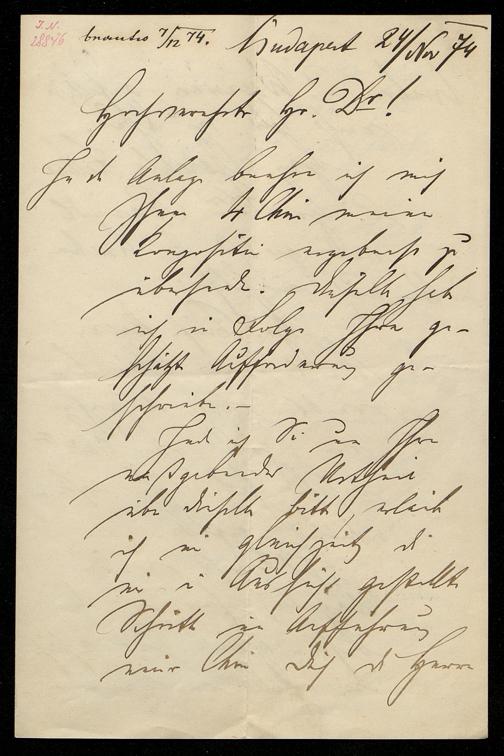 I.N.
28876
beantw 7/12 74.
Budapest 24/Nov 74
Hochverehrter Hr. Dr!
In der Anlage beehre ich mich
Ihnen 4 Chöre meiner
Komposition ergebenst zu
übersenden. Dieselben habe
ich in Folge Ihrer ge-
schätzten Aufforderung ge-
schrieben.—
Indem ich Sie um Ihr
maßgebendes Urtheil
über dieselben bitte, erlaube
ich mir gleichzeitig die
mir in Aussicht gestellten
Schritte zur Aufführung
meiner Chöre durch die Herren